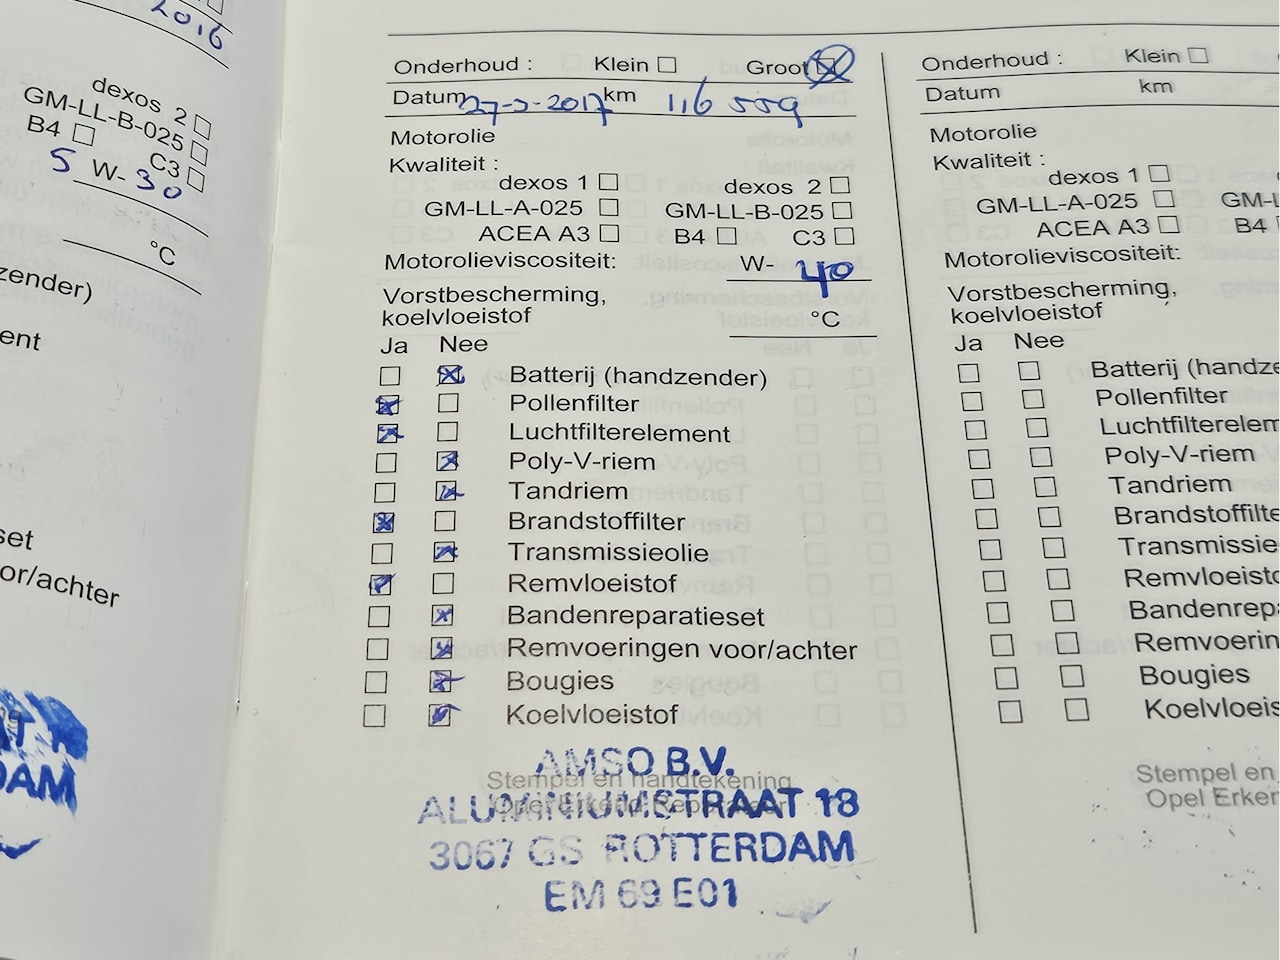 2016
dexos 2
GM-LL-B-025
B4 C3
5 W-30
°C
zender)
ent
set
or/achter
DAM
Onderhoud : Klein Groot
Datum 27-2-2017 km 116 559
Motorolie
Kwaliteit :
dexos 1 dexos 2
GM-LL-A-025 GM-LL-B-025
ACEA A3 B4 C3
Motorolieviscositeit: W- 40
Vorstbescherming,
koelvloeistof °C
Ja Nee
Batterij (handzender)
Pollenfilter
Luchtfilterelement
Poly-V-riem
Tandriem
Brandstoffilter
Transmissieolie
Remvloeistof
Bandenreparatieset
Remvoeringen voor/achter
Bougies
Koelvloeistof
Stempel en handtekening
Opel Erkend Reparateur
AMSO B.V.
ALUMINIUMSTRAAT 18
3067 GS ROTTERDAM
EM 69 E01
Onderhoud : Klein
Datum km
Motorolie
Kwaliteit :
dexos 1
GM-LL-A-025 GM-L
ACEA A3 B4
Motorolieviscositeit:
Vorstbescherming,
koelvloeistof
Ja Nee
Batterij (handze
Pollenfilter
Luchtfilterelem
Poly-V-riem
Tandriem
Brandstoffilte
Transmissie
Remvloeisto
Bandenrepa
Remvoerin
Bougies
Koelvloeis
Stempel en
Opel Erken